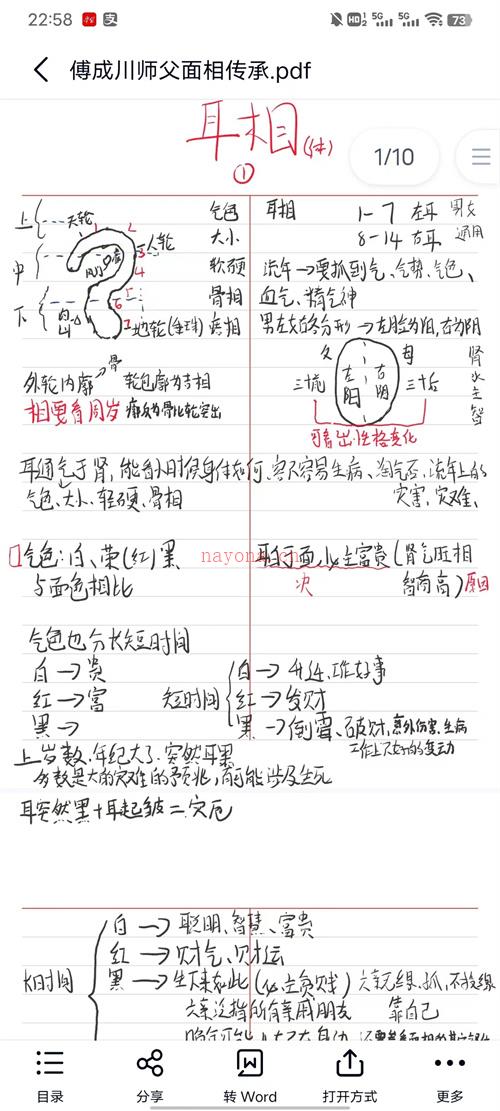 22:58
73
傅成川师父面相传承.pdf
1/10
耳相(体)
①
上 天轮
中 人轮 风门
下 地轮(垂珠)
气色
大小
软硬
骨相
耳相 1-7 左耳 男女
8-14 右耳 通用
流年→要抓到气、气势、气色、
血气、精气神
男左女右各分形→左脸为阳,右为阴
父 母
左阳 右阴
三十前 三十后
可看出性格变化
肾水主智
外轮内廓 骨 轮包廓为吉相
相要看周岁 廓反为骨比轮突出
耳通气于肾,能看小时候身体如何、容不容易生病、淘气否、流年上的
气色、大小、轻硬、骨相 灾害、灾难、
气色:白、荣(红)黑
与面色相比
耳白于面,必主富贵(肾气旺相
次 智商高)原因
nayona.cn
气色也分长短时间
白→贵
红→富
黑→
短时间
白→升迁、工作好事
红→发财
黑→倒霉、破财,意外伤害、生病
工作上不好的变动
上岁数、年纪大了、突然耳黑
多数是大的灾难的预兆,有可能涉及生死
耳突然黑+耳起皱=灾厄
长时间
白→聪明、智慧、富贵
红→财气、财运
黑→生下来如此(必主贫贱)六亲无缘、孤、不投缘
六亲泛指所有亲朋朋友 靠自己
目录
分享
转 Word
打开方式
更多